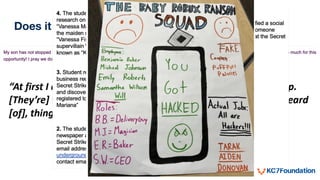 Does it
My son has not stopped
opportunity! I pray we do
"At first I
[They're]
[of], thing
4. The stude
research on
"Vanessa M
the maiden
"Vanessa Fi
supervillain
known as "K
3. Student
business re
Secret Strik
and discove
registered to
Mariana"
2. The stude
newspaper a
Secret Strik
email addre
underground
contact ema
THE BABY ROBUX RANSOM
SQUAD
Employees:
Benjamin Baker
Micheal Johnson
Emily Roberts
Samantha Wilson
Will
Roles:
B.B = Deliveryboy
M.J = Magician
E.R = Baker
S.W = CEO
You
GOT
HACKED
FAKE
Company
Puffytuff
Pastries
Actual Jobs:
All are
Hackers!!!
TARAK
AIDEN
DONOVAN
fied a social
omeone
at the Secret
much for this
p.
eard
KC7Foundation